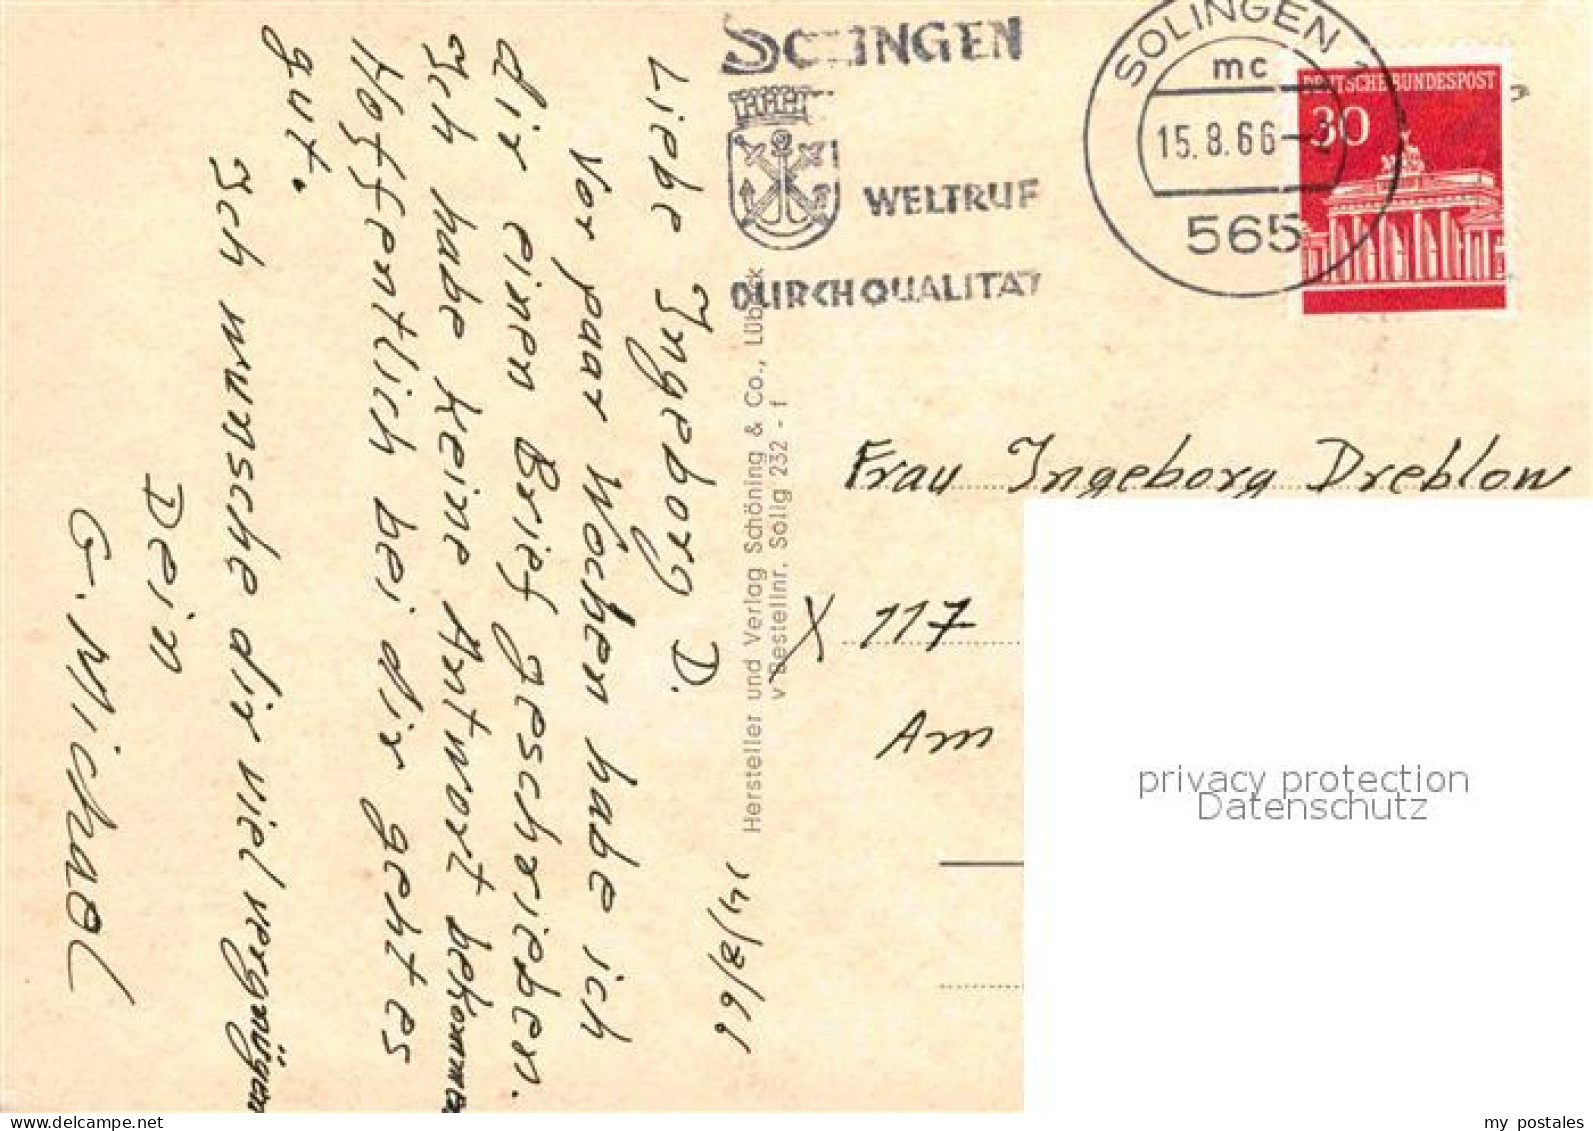 14/8/66
Liebe Ingeborg D.
Vor paar Wochen habe ich
dir einen Brief geschrieben.
Ich habe keine Antwort bekommen
Hoffentlich bei dir geht es
gut.
Ich wunsche dir viel vergnügen
Dein
G. Michael
Hersteller und Verlag Schöning & Co., Lübeck
v Bestellnr. Solig 232 - f
SOLINGEN
WELTRUF
DURCH QUALITÄT
SOLINGEN 1
mc
15.8.66
565
DEUTSCHE BUNDESPOST
30
Frau Ingeborg Dreblow
X 117
Am
privacy protection
Datenschutz
my postales